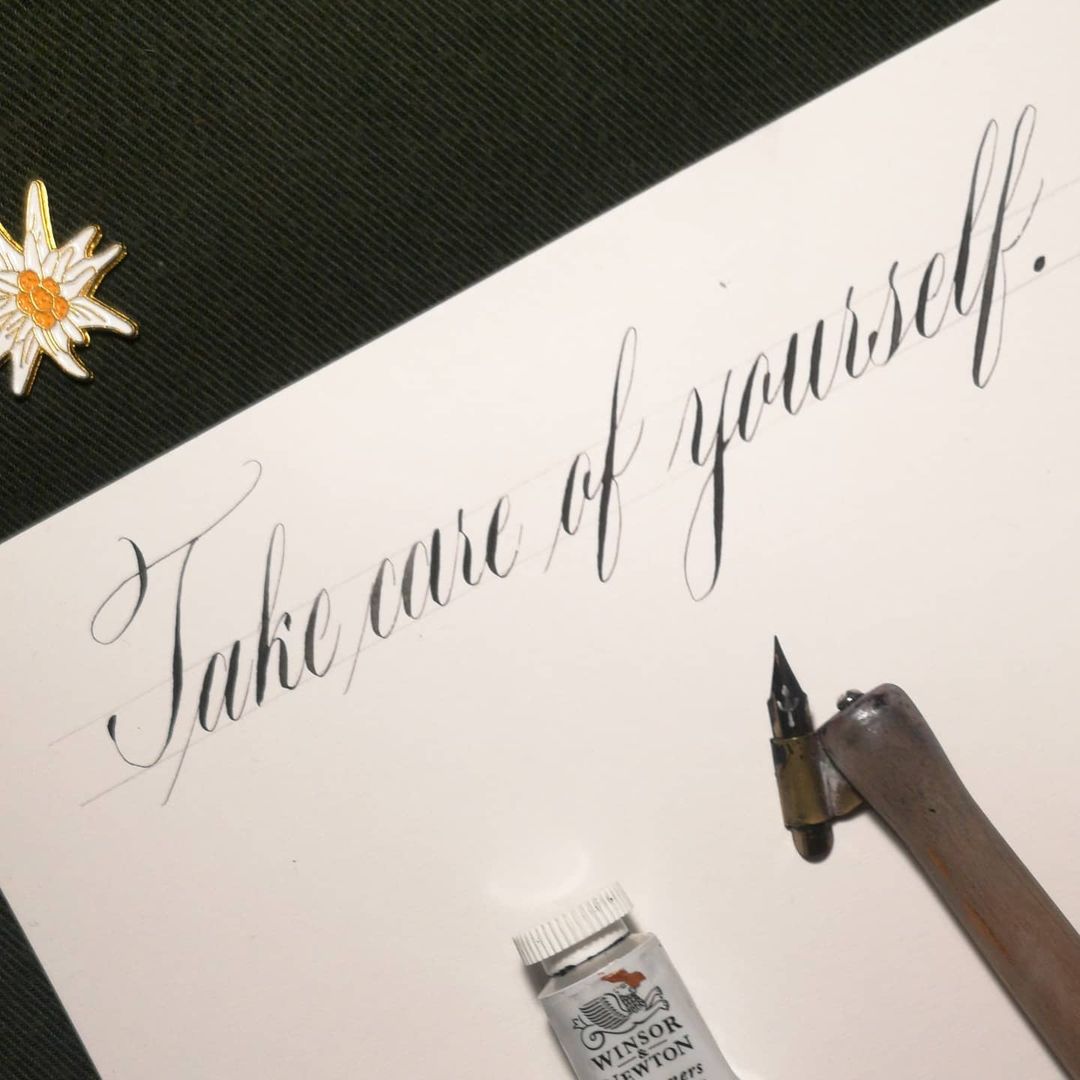 Take care of yourself.
WINSOR
&
NEWTON